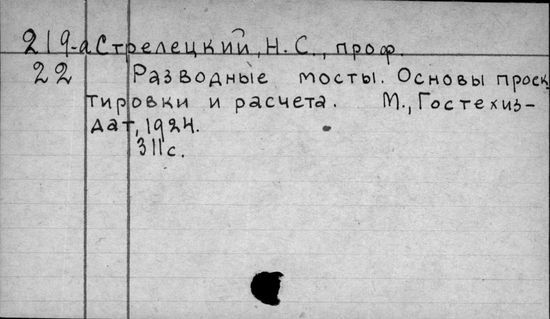 219-а Стрелецкий, Н.С., проф.
22 Разводные мосты. Основы проек
тировки и расчета. М., Гостехиз-
дат, 1924.
311с.